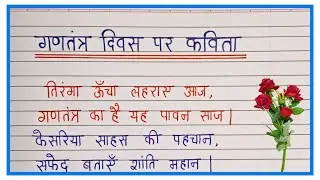 गणतंत्र दिवस पर कविता
तिरंगा ऊँचा लहरास आज,
गणतंत्र का है यह पावन साज।
केसरिया साहस की पहचान,
सफेद बताएँ शांति महान।